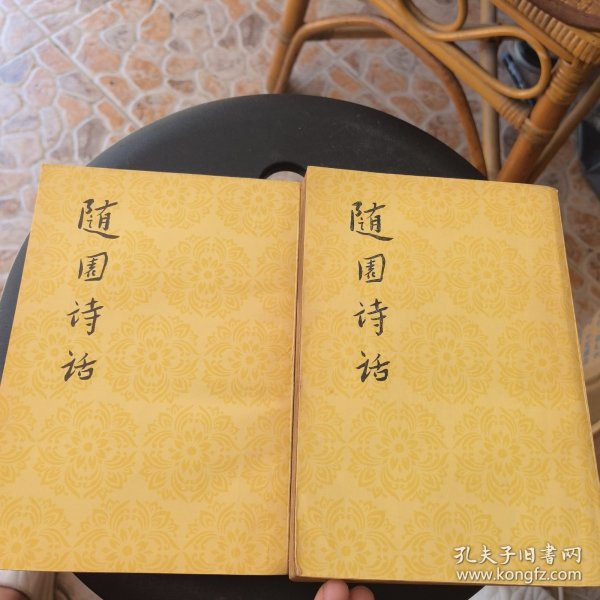 随园诗话
随园诗话
孔夫子旧書网
www.kongfz.com